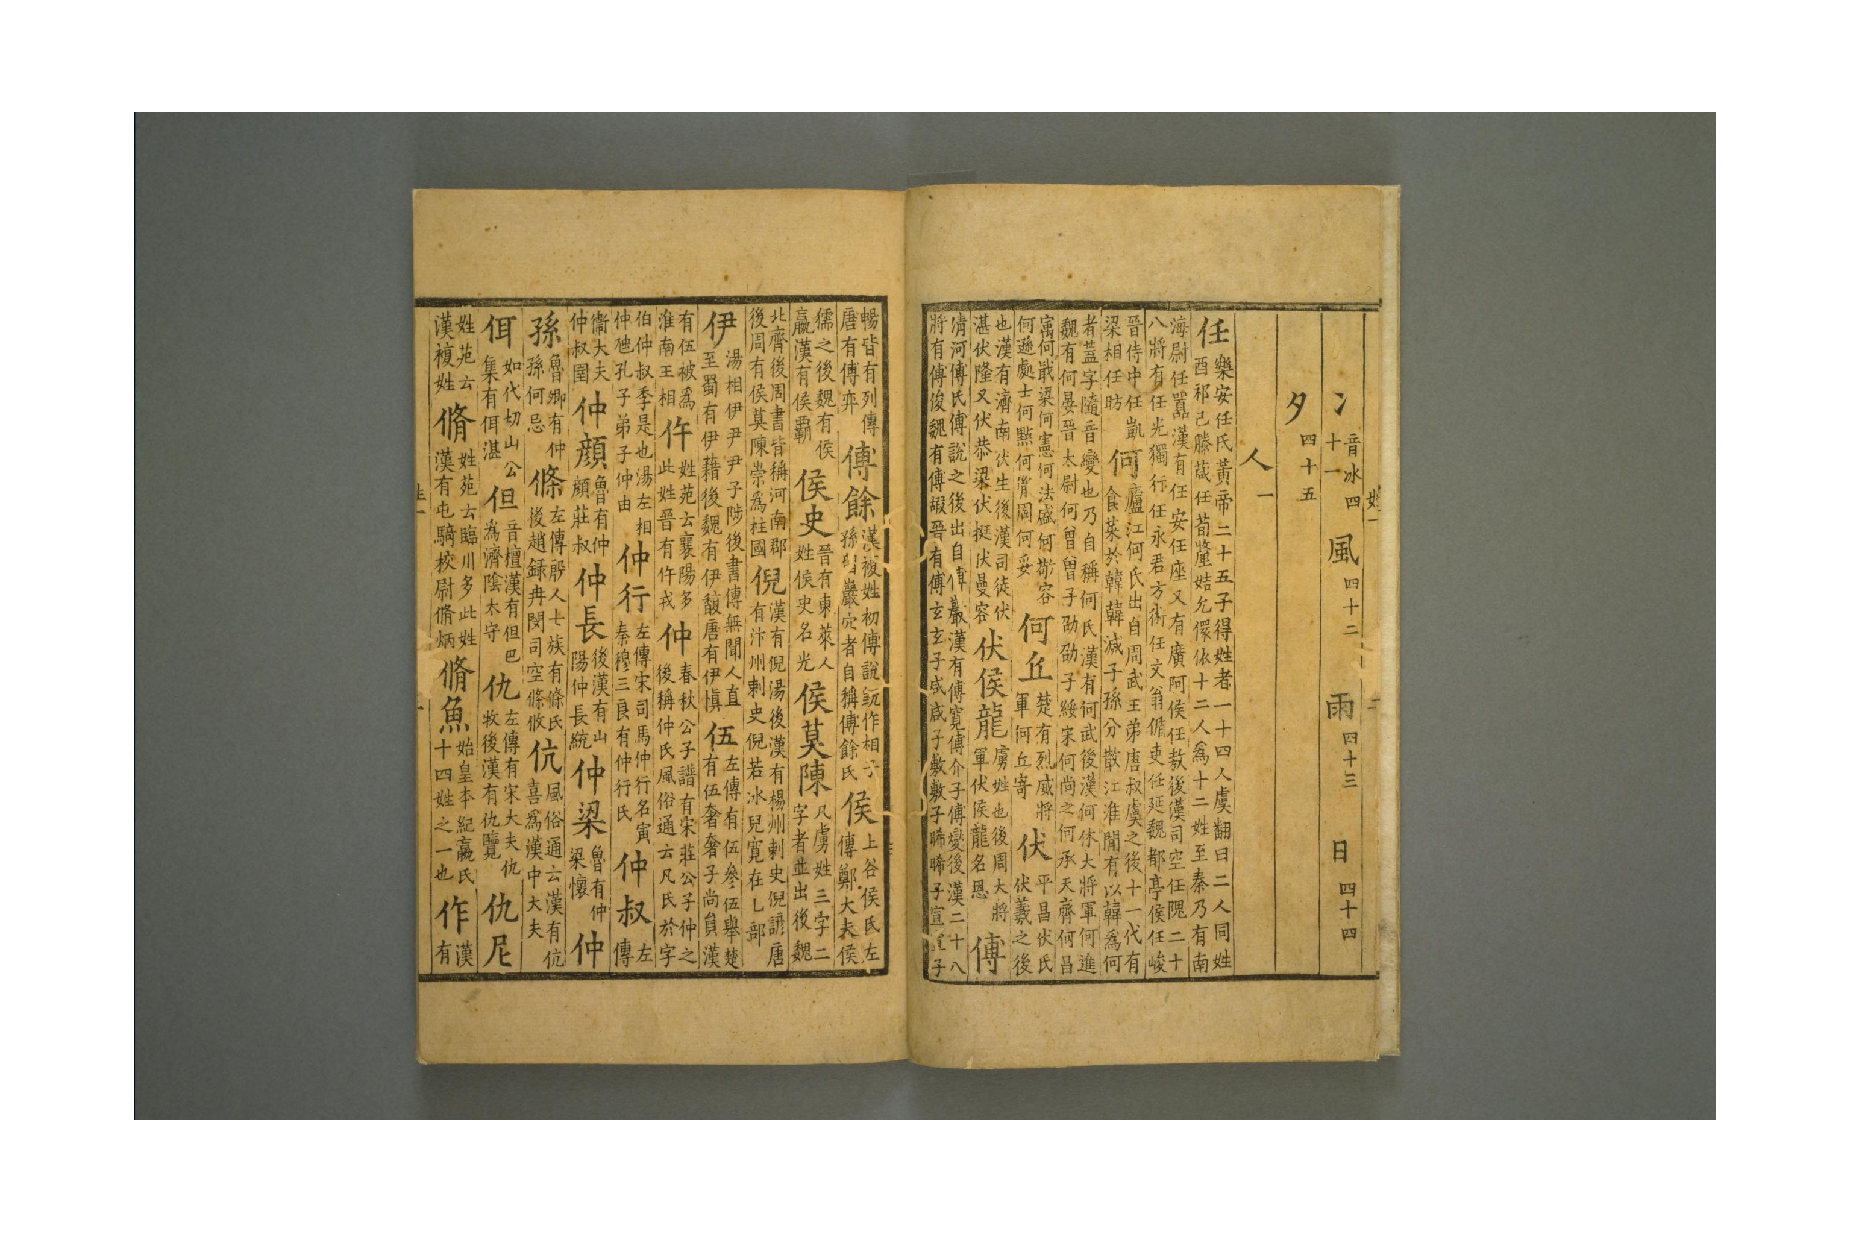 冫音冰四十一 風四十二 雨四十三 日四十四
夕四十五
人一
任樂安任氏黃帝二十五子得姓者一十四人虞翻曰二人同姓酉祁己滕葴任荀釐姞允儇依十二人爲十二姓至秦乃有南
海尉任囂漢有任安任座又有廣阿侯任敖後漢司空任隗二十八將有任光獨行任永君方術任文翁循吏任延魏都亭侯任峻
晉侍中任凱梁相任昉何廬江何氏出自周武王弟唐叔虞之後十一代有食菜於韓韓滅子孫分散江淮閒有以韓爲何
者蓋字隨音變也乃自稱何氏漢有何武後漢何休大將軍何進魏有何晏晉太尉何曾曾子劭劭子綏宋何尚之何承天齊何昌
㝢何戢梁何憲何法盛何敬容何遜處士何點何胤周何妥何丘楚有烈威將軍何丘寄伏平昌伏氏伏羲之後
也漢有濟南伏生後漢司徒伏湛伏隆又伏恭梁伏挺伏曼容伏侯龍虜姓也後周大將軍伏侯龍名恩傅
清河傅氏傅說之後出自傅巖漢有傅寬傅介子傅燮後漢二十八將有傅俊魏有傅嘏晉有傅玄玄子咸咸子敷敷子晞晞子宣宣子
暢皆有列傳唐有傅弈傅餘漢複姓初傅說旣作相子孫留巖穴者自稱傅餘氏侯上谷侯氏左傳鄭大夫侯
獳之後魏有侯嬴漢有侯霸侯史晉有東萊人姓侯史名光侯莫陳凡虜姓三字二字者並出後魏
北齊後周書皆稱河南郡後周有侯莫陳崇爲柱國倪漢有倪湯後漢有楊州刺史倪諺唐有汴州刺史倪若冰兒寬在乚部
伊湯相伊尹尹子陟後書傳無聞人直至蜀有伊藉後魏有伊馛唐有伊愼伍左傳有伍參伍舉楚有伍奢奢子尚員漢
有伍被爲淮南王相仵姓苑云襄陽多此姓晉有仵戎仲春秋公子譜有宋莊公子仲之後稱仲氏風俗通云凡氏於字
伯仲叔季是也湯左相仲虺孔子弟子仲由仲行左傳宋司馬仲行名寅秦穆三良有仲行氏仲叔左傳
衞大夫仲叔圉仲顏魯有仲顏莊叔仲長後漢有山陽仲長統仲梁魯有仲梁懷仲
孫魯卿有仲孫何忌條左傳殷人七族有條氏後趙錄冉閔司空條攸伉風俗通云漢有伉喜爲漢中大夫
佴如代切山公集有佴湛但音檀漢有但巴爲濟陰太守仇左傳有宋大夫仇牧後漢有仇覽仇尼
姓苑云漢複姓脩姓苑云臨川多此姓漢有屯騎校尉脩炳脩魚始皇本紀嬴氏十四姓之一也作漢有